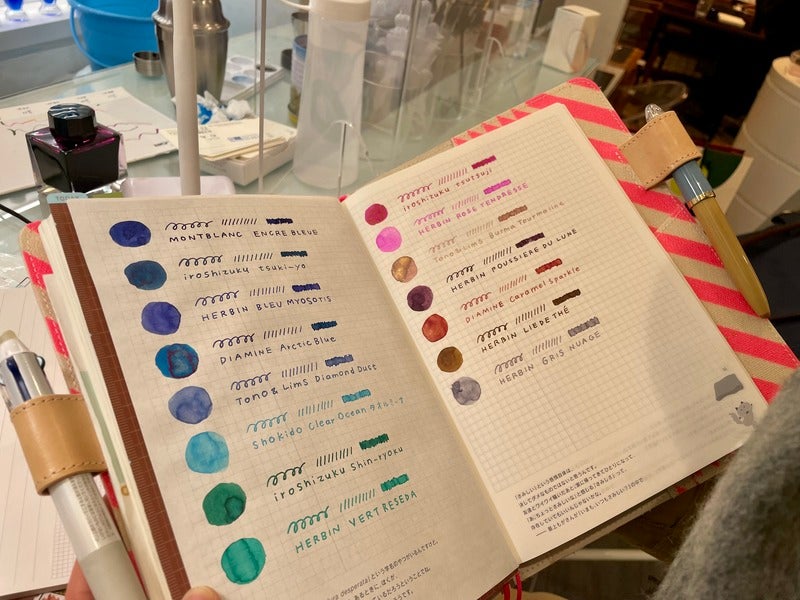 MONTBLANC ENCRE BLEUE
iroshizuku tsuki-yo
HERBIN BLEU MYOSOTIS
DIAMINE Arctic Blue
TONO & LIMS Diamond Dust
Shokido Clear Ocean タオルミーナ
iroshizuku Shin-ryoku
HERBIN VERT RESEDA
iroshizuku tsutsuji
HERBIN ROSE TENDRESSE
Tono&Lims Burma Tourmaline
HERBIN POUSSIERE DU LUNE
DIAMINE Caramel Sparkle
HERBIN LIE DE THÉ
HERBIN GRIS NUAGE
「さみしい」という感情自体は、